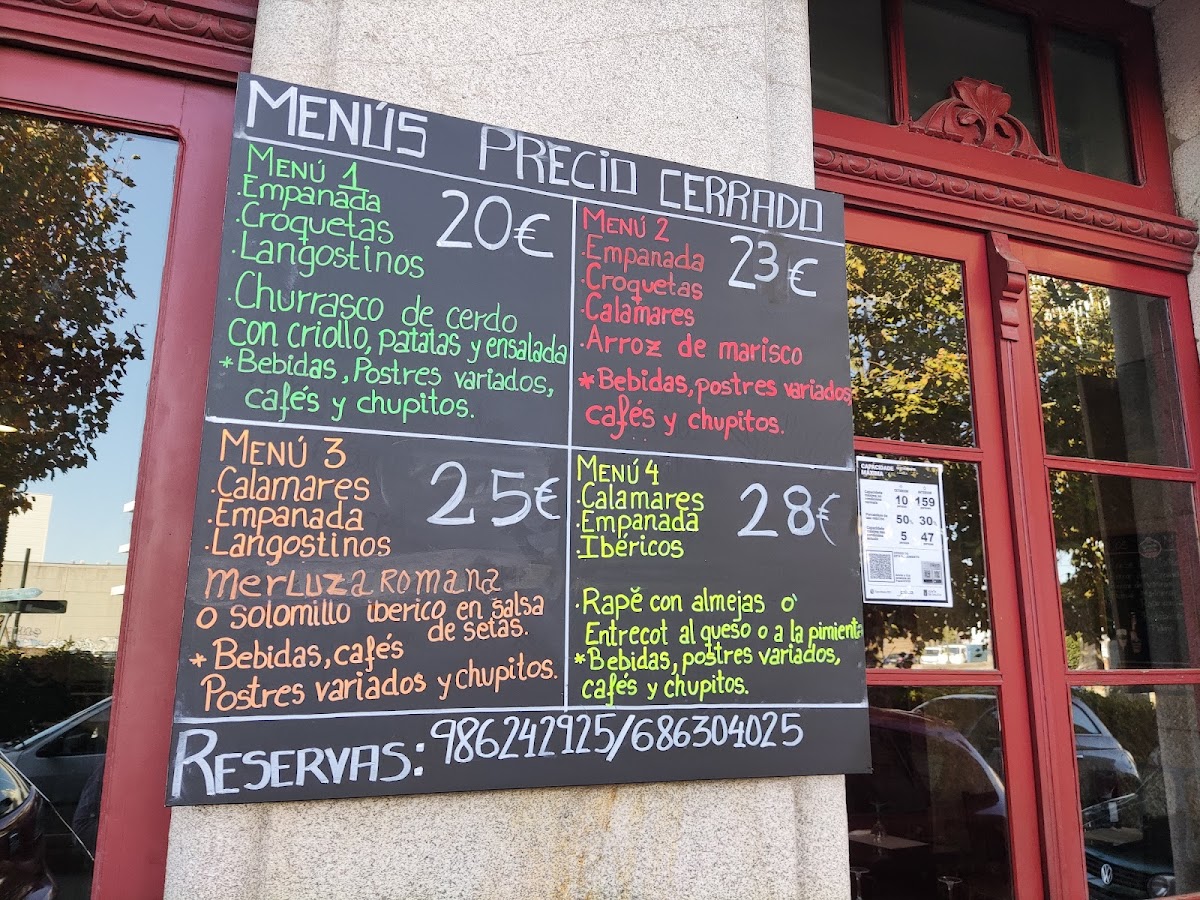 MENÚS PRECIO CERRADO
MENÚ 1
20€
.Empanada
.Croquetas
.Langostinos
.Churrasco de cerdo
con criollo, patatas y ensalada
*Bebidas, Postres variados,
cafés y chupitos.
MENÚ 2
23€
.Empanada
.Croquetas
.Calamares
.Arroz de marisco
*Bebidas, postres variados,
cafés y chupitos.
MENÚ 3
25€
.Calamares
.Empanada
.Langostinos
Merluza Romana
o solomillo iberico en salsa
de setas.
*Bebidas, cafés
Postres variados y chupitos.
MENÚ 4
28€
.Calamares
.Empanada
.Ibéricos
.Rape con almejas o
Entrecot al queso o a la pimienta
*Bebidas, postres variados,
cafés y chupitos.
RESERVAS: 986242925/686304025
CAPACIDADE
MÁXIMA
10 159
50% 30%
5 47